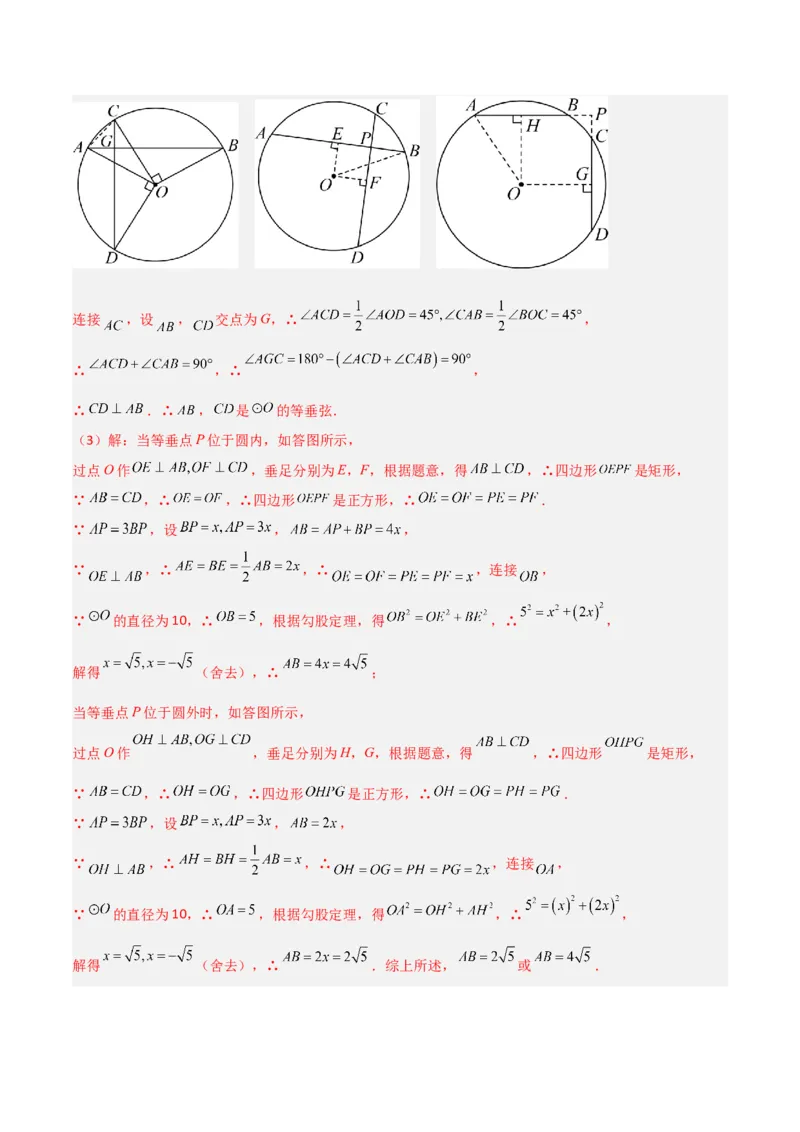 C
A
G
B
O
D
A
E
P
C
B
O
F
D
A
B
P
H
C
O
G
D
连接 AC ,设 AB , CD 交点为G,∴ ∠ACD = 1/2 ∠AOD = 45°, ∠CAB = 1/2 ∠BOC = 45° ,
∴ ∠ACD + ∠CAB = 90° ,∴ ∠AGC = 180° − (∠ACD + ∠CAB) = 90° ,
∴ CD ⊥ AB .∴ AB , CD 是 ⊙O 的等垂弦.
(3)解:当等垂点P位于圆内,如答图所示,
过点O作 OE ⊥ AB, OF ⊥ CD ,垂足分别为E,F,根据题意,得 AB ⊥ CD ,∴四边形 OEPF 是矩形,
∵ AB = CD ,∴ OE = OF ,∴四边形 OEPF 是正方形,∴ OE = OF = PE = PF .
∵ AP = 3BP ,设 BP = x, AP = 3x , AB = AP + BP = 4x ,
∵ OE ⊥ AB ,∴ AE = BE = 1/2 AB = 2x ,∴ OE = OF = PE = PF = x ,连接 OB ,
∵ ⊙O 的直径为10,∴ OB = 5 ,根据勾股定理,得 OB² = OE² + BE² ,∴ 5² = x² + (2x)² ,
解得 x = √5, x = −√5 (舍去),∴ AB = 4x = 4√5 ;
当等垂点P位于圆外时,如答图所示,
过点O作 OH ⊥ AB, OG ⊥ CD ,垂足分别为H,G,根据题意,得 AB ⊥ CD ,∴四边形 OHPG 是矩形,
∵ AB = CD ,∴ OH = OG ,∴四边形 OHPG 是正方形,∴ OH = OG = PH = PG .
∵ AP = 3BP ,设 BP = x, AP = 3x , AB = 2x ,
∵ OH ⊥ AB ,∴ AH = BH = 1/2 AB = x ,∴ OH = OG = PH = PG = 2x ,连接 OA ,
∵ ⊙O 的直径为10,∴ OA = 5 ,根据勾股定理,得 OA² = OH² + AH² ,∴ 5² = (x)² + (2x)² ,
解得 x = √5, x = −√5 (舍去),∴ AB = 2x = 2√5 .综上所述, AB = 2√5 或 AB = 4√5 .